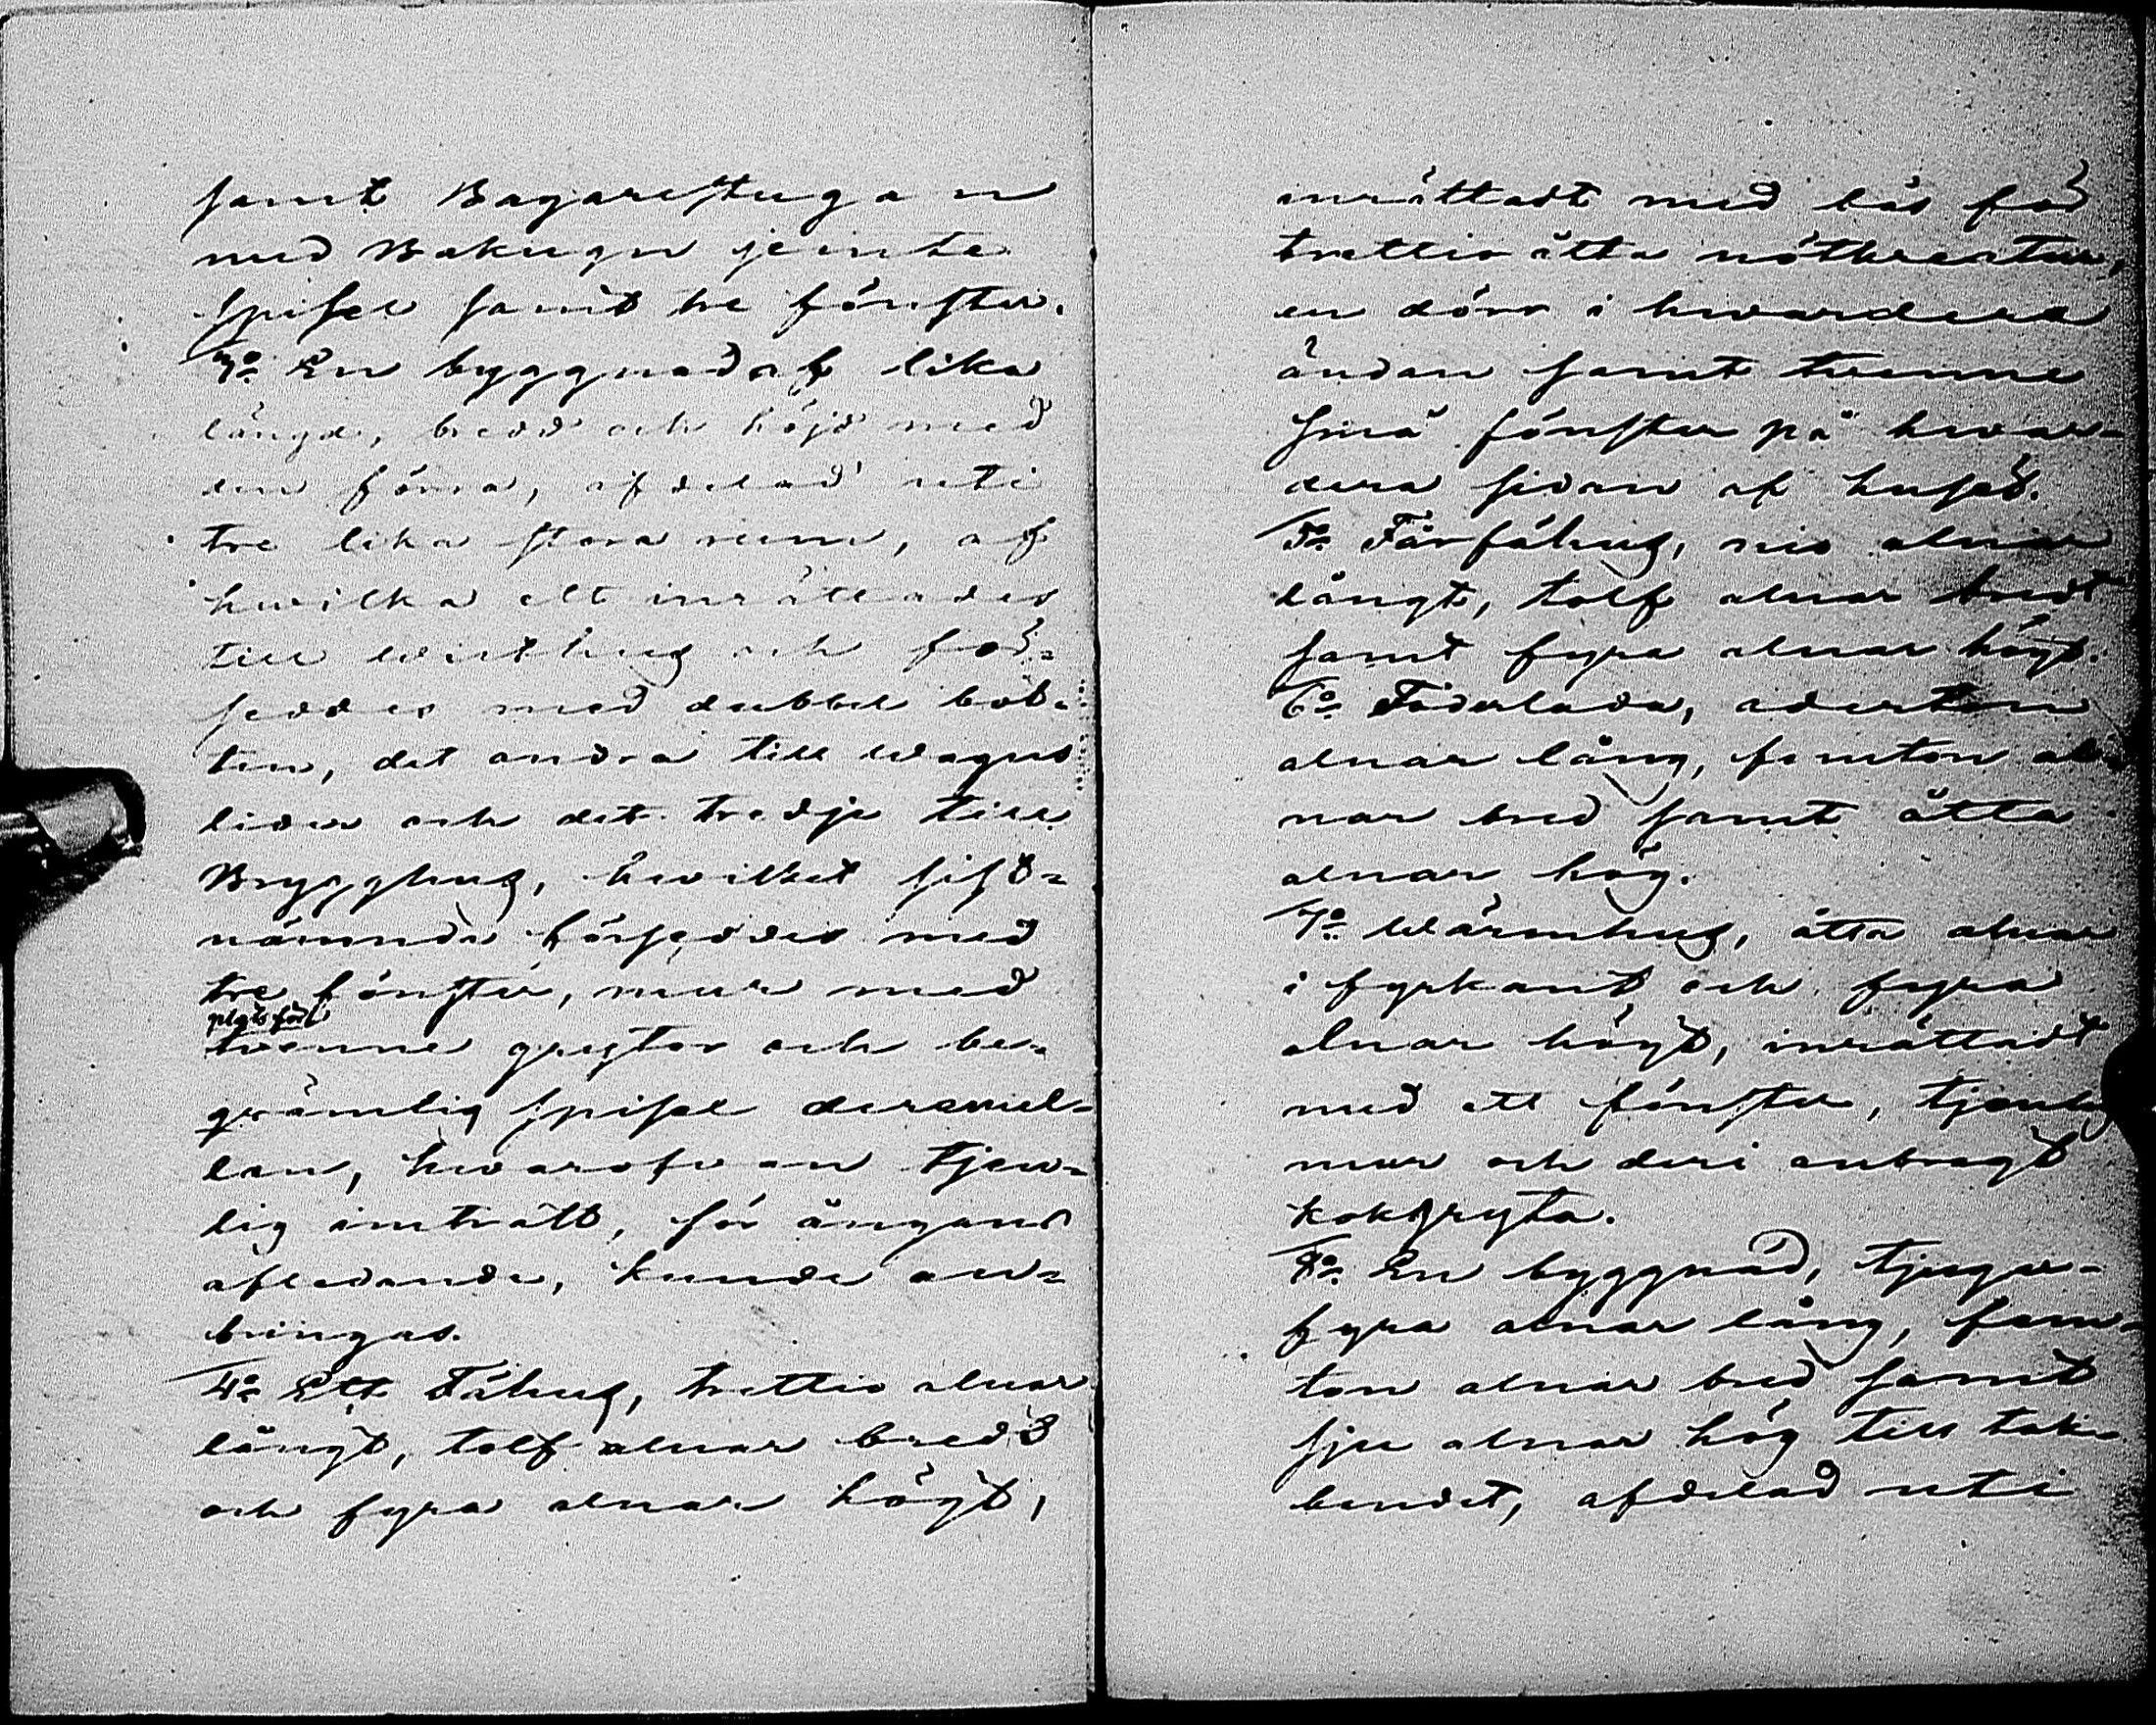 samt Bagarestugan
med Bakugn jemte
spisel samt tre fönster.
3:o En byggnad af lika
längd, bredd och höjd med
den förra, afdelad uti
tre lika stora rum, af
hwilka ett inrättades
till wisthus och för-
seddes med dubbel bot-
ten, det andra till wagns
lider och det tredje till
Brygghus, hwilket sist-
nämnda förseddes med
tre fönster, mur med
plats för
twenne grytor och be-
qwämlig spisel deremel-
lan, hwarofwan tjen-
lig inträtt, för ångans
afledande, kunde an-
bringas.
4:o Ett Fähus, trettio alnar
långt, tolf alnar bredt
och fyra alnar högt,
inrättadt med bås för
trettio åtta nötkreatur,
en dörr i hwardera
ändan samt twenne
små fönster på hwar-
dera sidan af huset.
5:o Fårfähus, nio alnar
långt, tolf alnar bredt
samt fyra alnar högt.
6:o Foderlada, aderton
alnar lång, femton al-
nar bred samt åtta
alnar hög.
7:o Wärmhus, åtta alnar
i fyrkant och fyra
alnar högt, inrättadt
med ett fönster, tjenlig
mur och deri anbragt
kokgryta.
8:o En byggnad, tjugu-
fyra alnar lång, fem-
ton alnar bred samt
sju alnar hög till tak-
bandet, afdelad uti